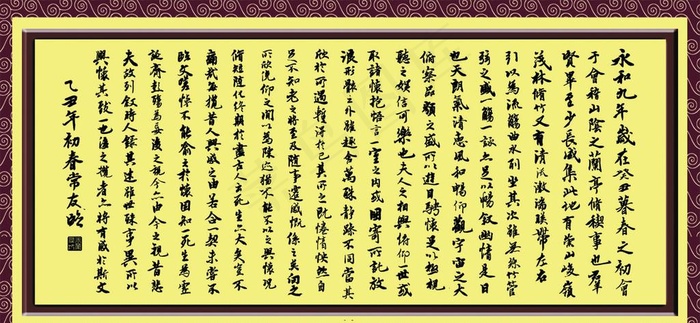 永和九年歲在癸丑暮春之初會
于會稽山陰之蘭亭脩稧事也羣
賢畢至少長咸集此地有崇山峻嶺
茂林脩竹又有清流激湍暎帶左右
引以為流觴曲水列坐其次雖無絲竹管
弦之盛一觴一詠亦足以暢敘幽情是日
也天朗氣清惠風和暢仰觀宇宙之大
俯察品類之盛所以遊目騁懷足以極視
聽之娛信可樂也夫人之相與俯仰一世或
取諸懷抱悟言一室之内或因寄所託放
浪形骸之外雖趣舍萬殊靜躁不同當其
欣於所遇暫得於己其所之既惓情快然自
足不知老之將至及随事遷感慨係之矣向之
所欣俛仰之間以為陳迹猶不能不以之興懷况
脩短随化終期於盡古人云死生亦大矣豈不
痛哉每攬昔人興感之由若合一契未嘗不
臨文嗟悼不能喻之於懷固知一死生為虛
誕齊彭殤為妄後之視今亦由今之視昔悲
夫故列敘時人錄其述雖世殊事異所以
興懷其致一也後之攬者亦將有感於斯文
乙丑年初春常友